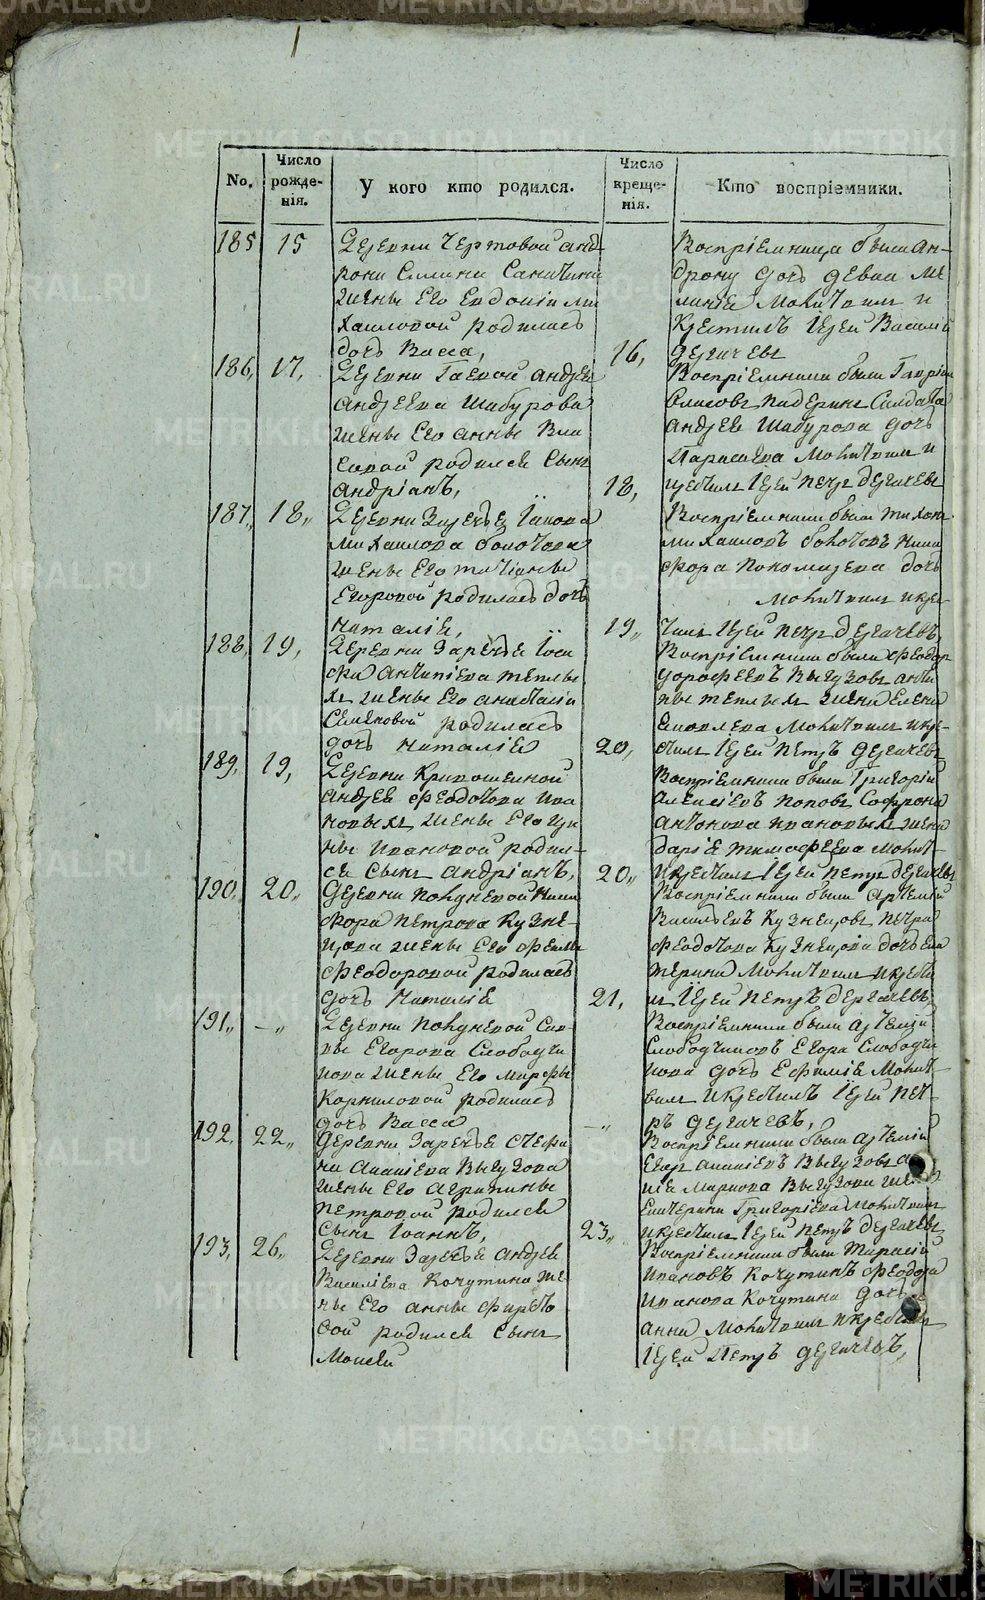 No.
Число рожде-нія.
У кого кто родился.
Число креще-нія.
Кто воспріемники.
185 15
Деревни Чертовой Анд-
рони
жены Его Евдокіи Ми
хаиловой родилась
дочь Васса,
16,
Воспріемница была Ан-
дрону дочь девка Ме
ланія Молитвилъ и
Крестилъ Іерей Василій
Дергачевъ
186, 17,
Деревни Гаевой Андрея
Андреева Шабурова
жены Его Анны Вла
совой родился Сынъ
Андріанъ,
18,
Воспріемники были
Падеринъ Солдата
Андрея Шабурова дочь
Параскева Молитвилъ и
крестилъ Іерей Петръ Дергачевъ
187, 18,
Деревни Заречья Іакова
Михаилова
жены Его Татіаны
Егоровой родилась дочь
Наталія,
19,
Воспріемники были Тихонъ
Михаиловъ Ники
фора дочь
Молитвилъ и крес
тилъ Іерей Петръ Дергачевъ,
188, 19,
Деревни Заречья Іоси
фа Антипіева Теплы
хъ жены Его Анастасіи
Семеновой родилась
дочь Наталія
20,
Воспріемники были Феодоръ
Дорофеевъ Выгузовъ Анти
пы Теплыхъ жена Елена
Яковлева Молитвилъ и кре
стилъ Іерей Петръ Дергачевъ
189, 19,
Деревни Кривошеиной
Андрея Феодотова Ива
новыхъ жены Его Ири
ны Ивановой родил-
ся Сынъ Андріанъ,
20,
Воспріемники были Григорій
Алексіевъ Поповъ Софрона
Антонова Ивановыхъ жена
Дарія Тимофеева Молит
И Крестилъ Іерей Петръ Дергачевъ
190, 20,
Деревни Полдневой Ники
фора Петрова Кузне-
цова жены Его
Феодоровой родилась
дочь Наталія
21,
Воспріемники были Артемій
Васильевъ Кузнецовъ, Петра
Феодотова Кузнецова дочь Ека
терина Молитвилъ и крести
лъ Іерей Петръ Дергачевъ,
191, —
Деревни Полдневой Сав-
вы Егорова Слободчи
кова жены Его Марфы
Корниловой родилась
дочь Васса
—
Воспріемники были Артемій
Слободчиковъ Егора Слободчи
кова дочь Ефимія Молит
вилъ И крестилъ Іерей Пет
ръ Дергачевъ,
192, 22,
Деревни Заречья Стефа
на Ананіева Выгузова
жены Его Агрипины
Петровой родился
Сынъ Іоаннъ,
23,
Воспріемники были Артемій
Ананіевъ Выгузовъ
Маркова Выгузова
Екатерина Григоріева Молитвилъ
И крестилъ Іерей Петръ Дергачевъ
193, 26,
Деревни Заречья Андрея
Василіева Кочутина же
ны Его Анны Фирсо
вой родился Сынъ
Моисей
Воспріемники были Тарасій
Ивановъ Кочутинъ Феодора
Иванова Кочутина дочь
Анна Молитвилъ И крестилъ
Іерей Петръ Дергачевъ,
METRIKI.GASO-URAL.RU